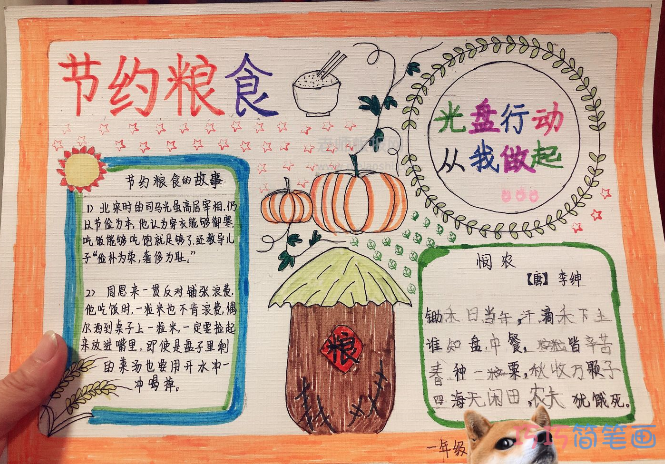 节约粮食
光盘行动
从我做起
节约粮食的故事
1）北宋时由司马光虽高居宰相，仍
以节俭为本，他认为穿衣能够御寒，
吃饭能够吃饱就足够了，还教导儿
子“俭朴为荣，奢侈为耻。”
2）周恩来一贯反对铺张浪费，
他吃饭时，一粒米也不肯浪费，偶
尔洒到桌子上一粒米，一定要捡起
来放进嘴里，即使是盘子里剩
的菜汤也要用开水冲一
冲喝掉。
粮
悯农
【唐】李绅
锄禾日当午，汗滴禾下土
谁知盘中餐，粒粒皆辛苦
春种一粒粟，秋收万颗子
四海无闲田，农夫犹饿死。
一年级
简笔画